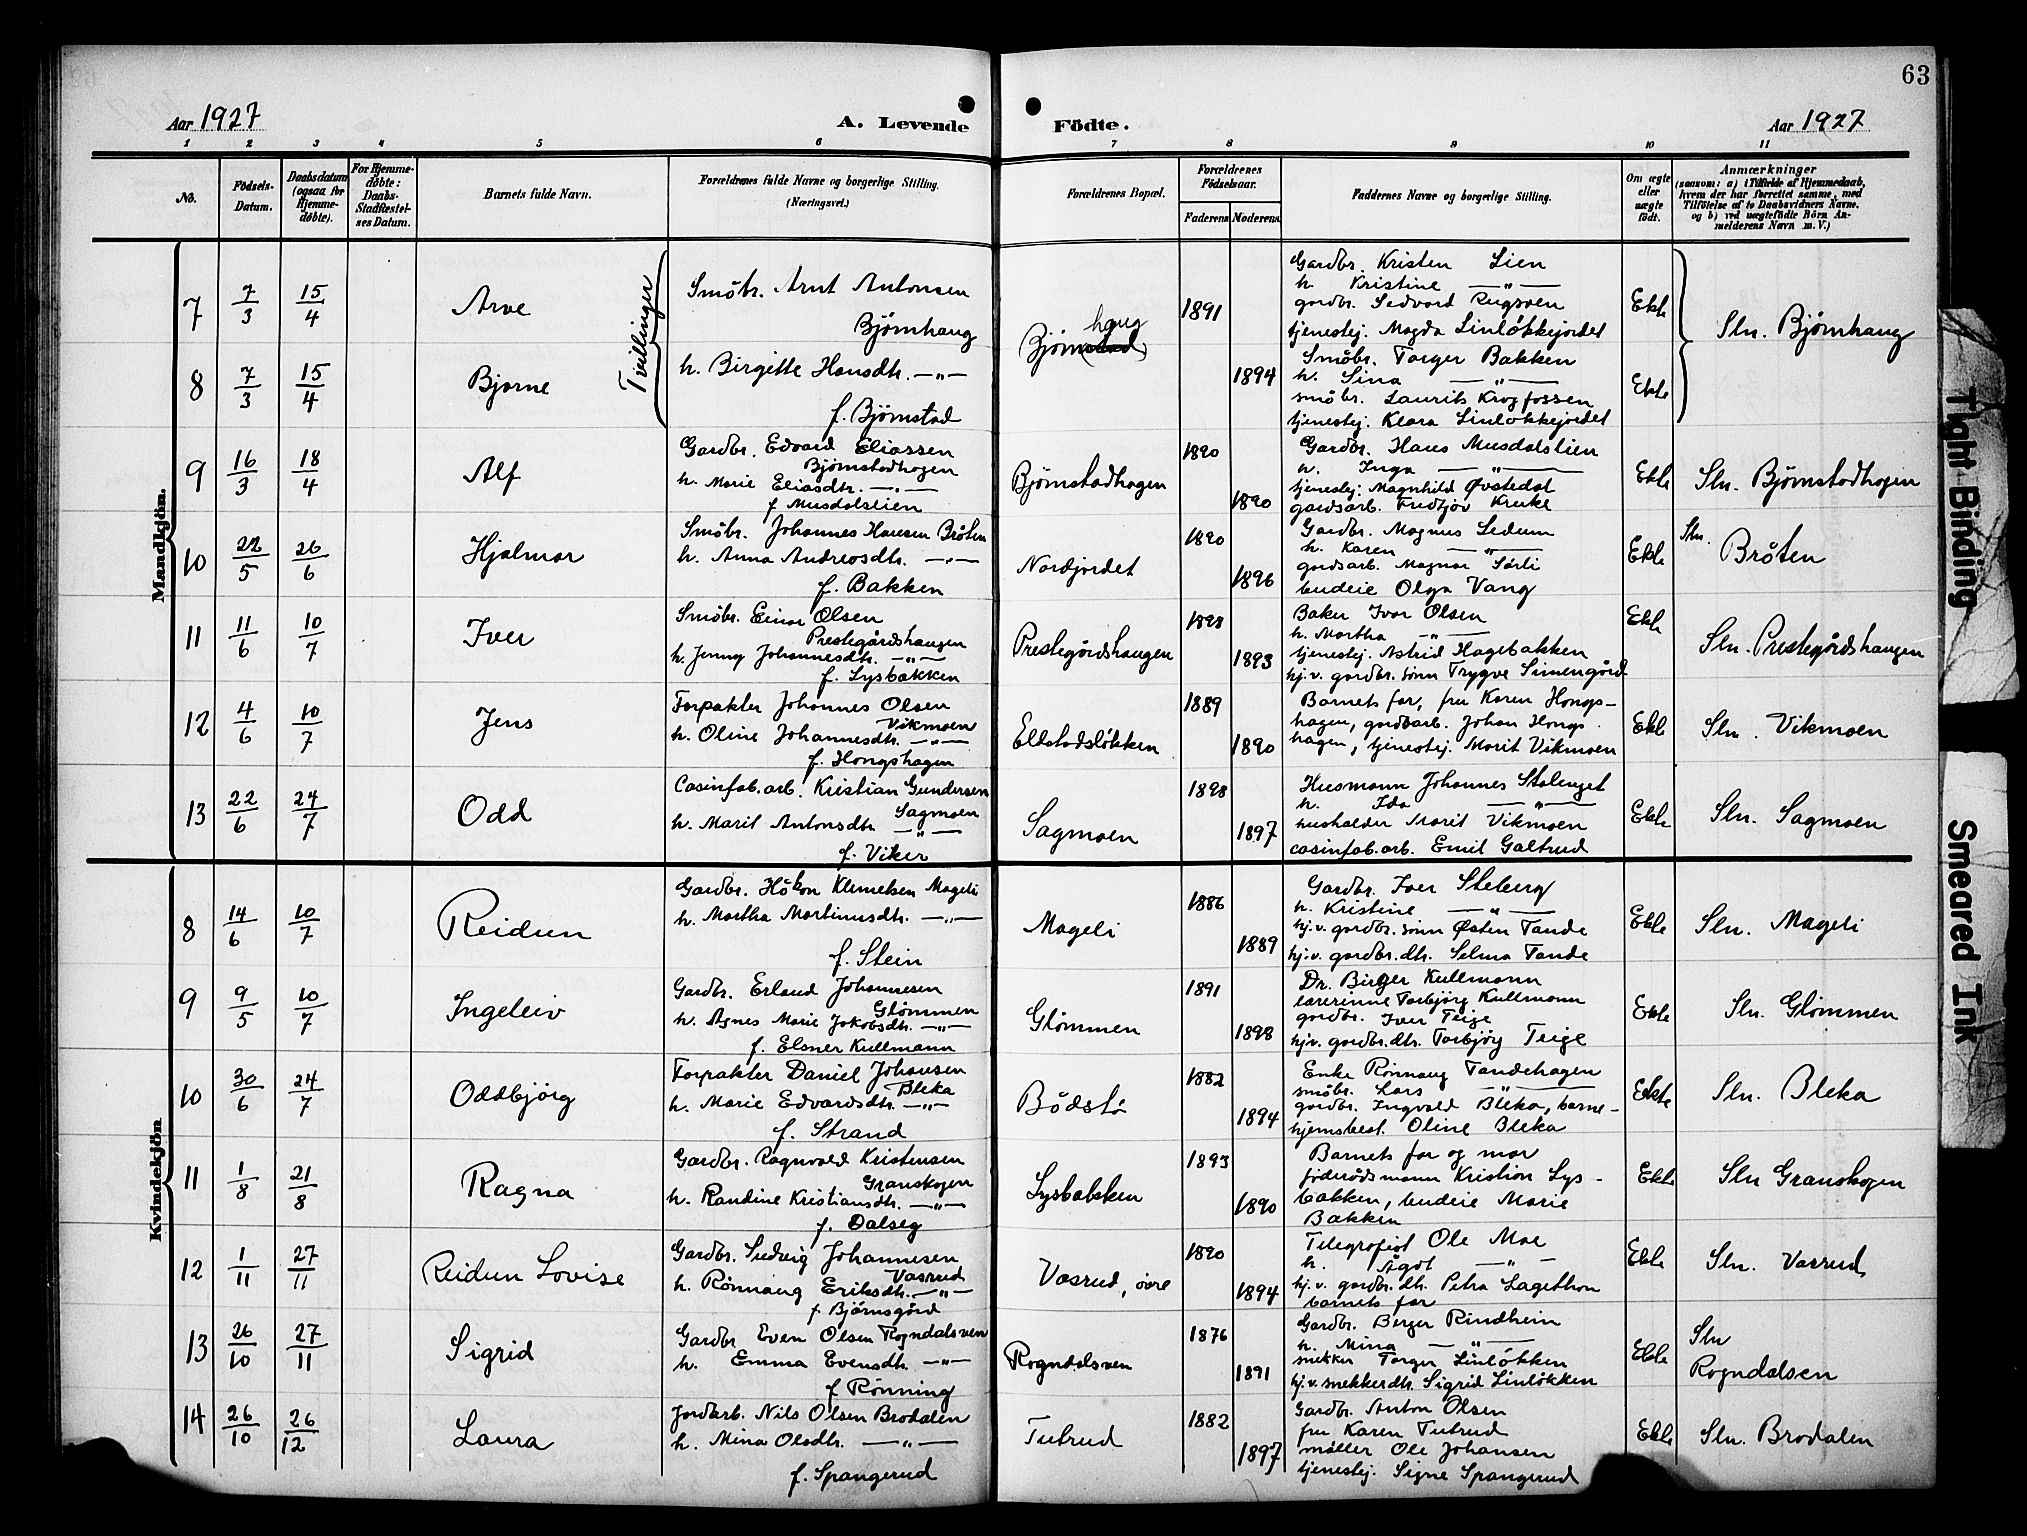 63
Aar 1927
A. Levende Födte.
Aar 1927
1 2 3 4 5 6 7 8 9 10 11
No.
Födsels-
Datum.
Daabsdatum
(ogsaa for
Hjemme-
døbte).
For Hjemme-
døbte:
Daabs-
Stadfæstel-
ses Datum.
Barnets fulde Navn.
Forældrenes fulde Navne og borgerlige Stilling.
(Næringsvei.)
Forældrenes Bopæl.
Forældrenes
Födselsaar.
Faderens.
Moderens.
Faddernes Navne og borgerlige Stilling.
Om ægte
eller
uægte
födt.
Anmærkninger
(saasom: a) i Tilfælde af Hjemmedaab,
hvem der har forrettet samme, med
Tilföielse af to Daabsvidners Navne,
og b) ved uægtefödte Börn An-
melderens Navn m. V.)
Mandkjön.
7
7/3
15/4
Arve
Tvillinger
Småbr. Arnt Antonsen
Bjørnhaug
Bjørnstad
haug
1891
Gardbr. Kristen Lien
h. Kristine —"—
gardbr. Sedvard Rugsveen
tjenestej. Magda Linløkkejordet
Ekte
Sln. Bjørnhaug
8
7/3
15/4
Bjarne
h. Birgitte Hansdtr. —"—
f. Bjørnstad
1894
Småbr. Torger Bakken
h. Sina —"—
småbr. Laurits Krogfossen
tjenestej. Klara Linløkkejordet
Ekte
9
16/3
18/4
Alf
Gardbr. Edvard Eliassen
Bjørnstadhagen
h. Marie Eliasdtr. —"—
f. Musdalslien
Bjørnstadhagen
1890
1890
Gardbr. Hans Musdalslien
h. Inga —"—
tjenestej. Magnhild Øvstedal
gardsarb. Fredtjov Kruke
Ekte
Sln. Bjørnstadhagen
10
22/5
26/6
Hjalmar
Småbr. Johannes Hansen Bråten
h. Anna Andreasdtr. —"—
f. Bakken
Nordjordet
1890
1896
Gardbr. Magnus Sedum
h. Karen —"—
gardsarb. Magnar Sørli
budeie Olga Vang
Ekte
Sln.
Bråten
11
11/6
10/7
Iver
Småbr. Einar Olsen
Prestegårdshaugen
h. Jenny Johannesdtr. —"—
f. Lysbakken
Prestegårdshaugen
1898
1893
Baker Ivar Olsen
h. Martha —"—
tjenestej. Astrid Hagebakken
hj.v. gardbr. sønn Trygve Simengård
Ekte
Sln. Prestegårdshaugen
12
4/6
10/7
Jens
Forpakter Johannes Olsen
Vikmoen
h. Oline Johannesdtr. —"—
f. Hongshagen
Eldstadsløkken
1889
1890
Barnets far, fru Karen Hongs-
hagen, gardsarb. Johan Hongs-
hagen, tjenestej. Marit Vikmoen
Ekte
Sln. Vikmoen
13
22/6
24/7
Odd
Casinfab.arb. Kristian Gundersen
Sagmoen
h. Marit Antonsdtr. —"—
f. Viker
Sagmoen
1898
1897
Husmann Johannes Stalenget
h. Ida —"—
husholder Marit Vikmoen
casinfab.arb. Emil Galtrud
Ekte
Sln. Sagmoen
Kvindekjön
8
14/6
10/7
Reidun
Gardbr. Håkon Klemetsen Mageli
h. Martha Martinusdtr. —"—
f. Stein
Mageli
1886
1889
Gardbr. Iver Steberg
h. Kristine —"—
hj.v. gardbr. sønn Østen Tande
hj.v. gardbr. dtr. Selma Tande
Ekte
Sln. Mageli
9
9/5
10/7
Ingeleiv
Gardbr. Erland Johannesen
Glømmen
h. Agnes Marie Jakobsdtr. —"—
f. Elsner Kullmann
Glømmen
1891
1898
Dr. Birger Kullmann
lærerinne Torbjørg Kullmann
gardbr. Iver Teige
hj.v. gardbr. dtr. Torbjørg Teige
Ekte
Sln. Glømmen
10
30/6
24/7
Oddbjørg
Forpakter Daniel Johansen
Bleka
h. Marie Edvardsdtr. —"—
f. Strand
Bådstø
1882
1894
Enke Rønnaug Tandehagen
småbr. Lars —"—
gardbr. Ingvald Bleka, barne-
hjemsbest. Oline Bleka
Ekte
Sln. Bleka
11
1/8
21/8
Ragna
Gardbr. Ragnvald Kristensen
Granskogen
h. Randine Kristiansdtr. —"—
f. Dalseg
Lysbakken
1893
1890
Barnets far og mor
føderådsmann Kristian Lys-
bakken, budeie Marie
Bakken
Ekte
Sln Granskogen
12
1/11
27/11
Reidun Lovise
Gardbr. Ludvig Johannesen
Vasrud
h. Rønnaug Eriksdtr. —"—
f. Bjørnsgård
Vasrud, övre
1890
1894
Telegrafist Ole Moe
h. Ågot —"—
hj.v. gardbr. dtr. Petra Lagethon
barnets far
Ekte
Sln. Vasrud
13
26/10
27/11
Sigrid
Gardbr Even Olsen Rogndalsven
h. Emma Evensdtr. —"—
f. Rønning
Rogndalsven
1876
1891
Gardbr. Berger Rindheim
h. Mina —"—
snekker Torger Linløkken
hj.v. snekkerdtr. Sigrid Linløkken
Ekte
Sln
Rogndalsen
14
26/10
26/12
Laura
Jordarb. Nils Olsen Brodalen
h. Mina Olsdtr. —"—
f. Spangerud
Tutrud
1882
1897
Gardbr. Anton Olsen
fru Karen Tutrud
møller Ole Johansen
tjenestej. Signe Spangerud
Ekte
Sln. Brodalen
Tight Binding
Smeared Ink